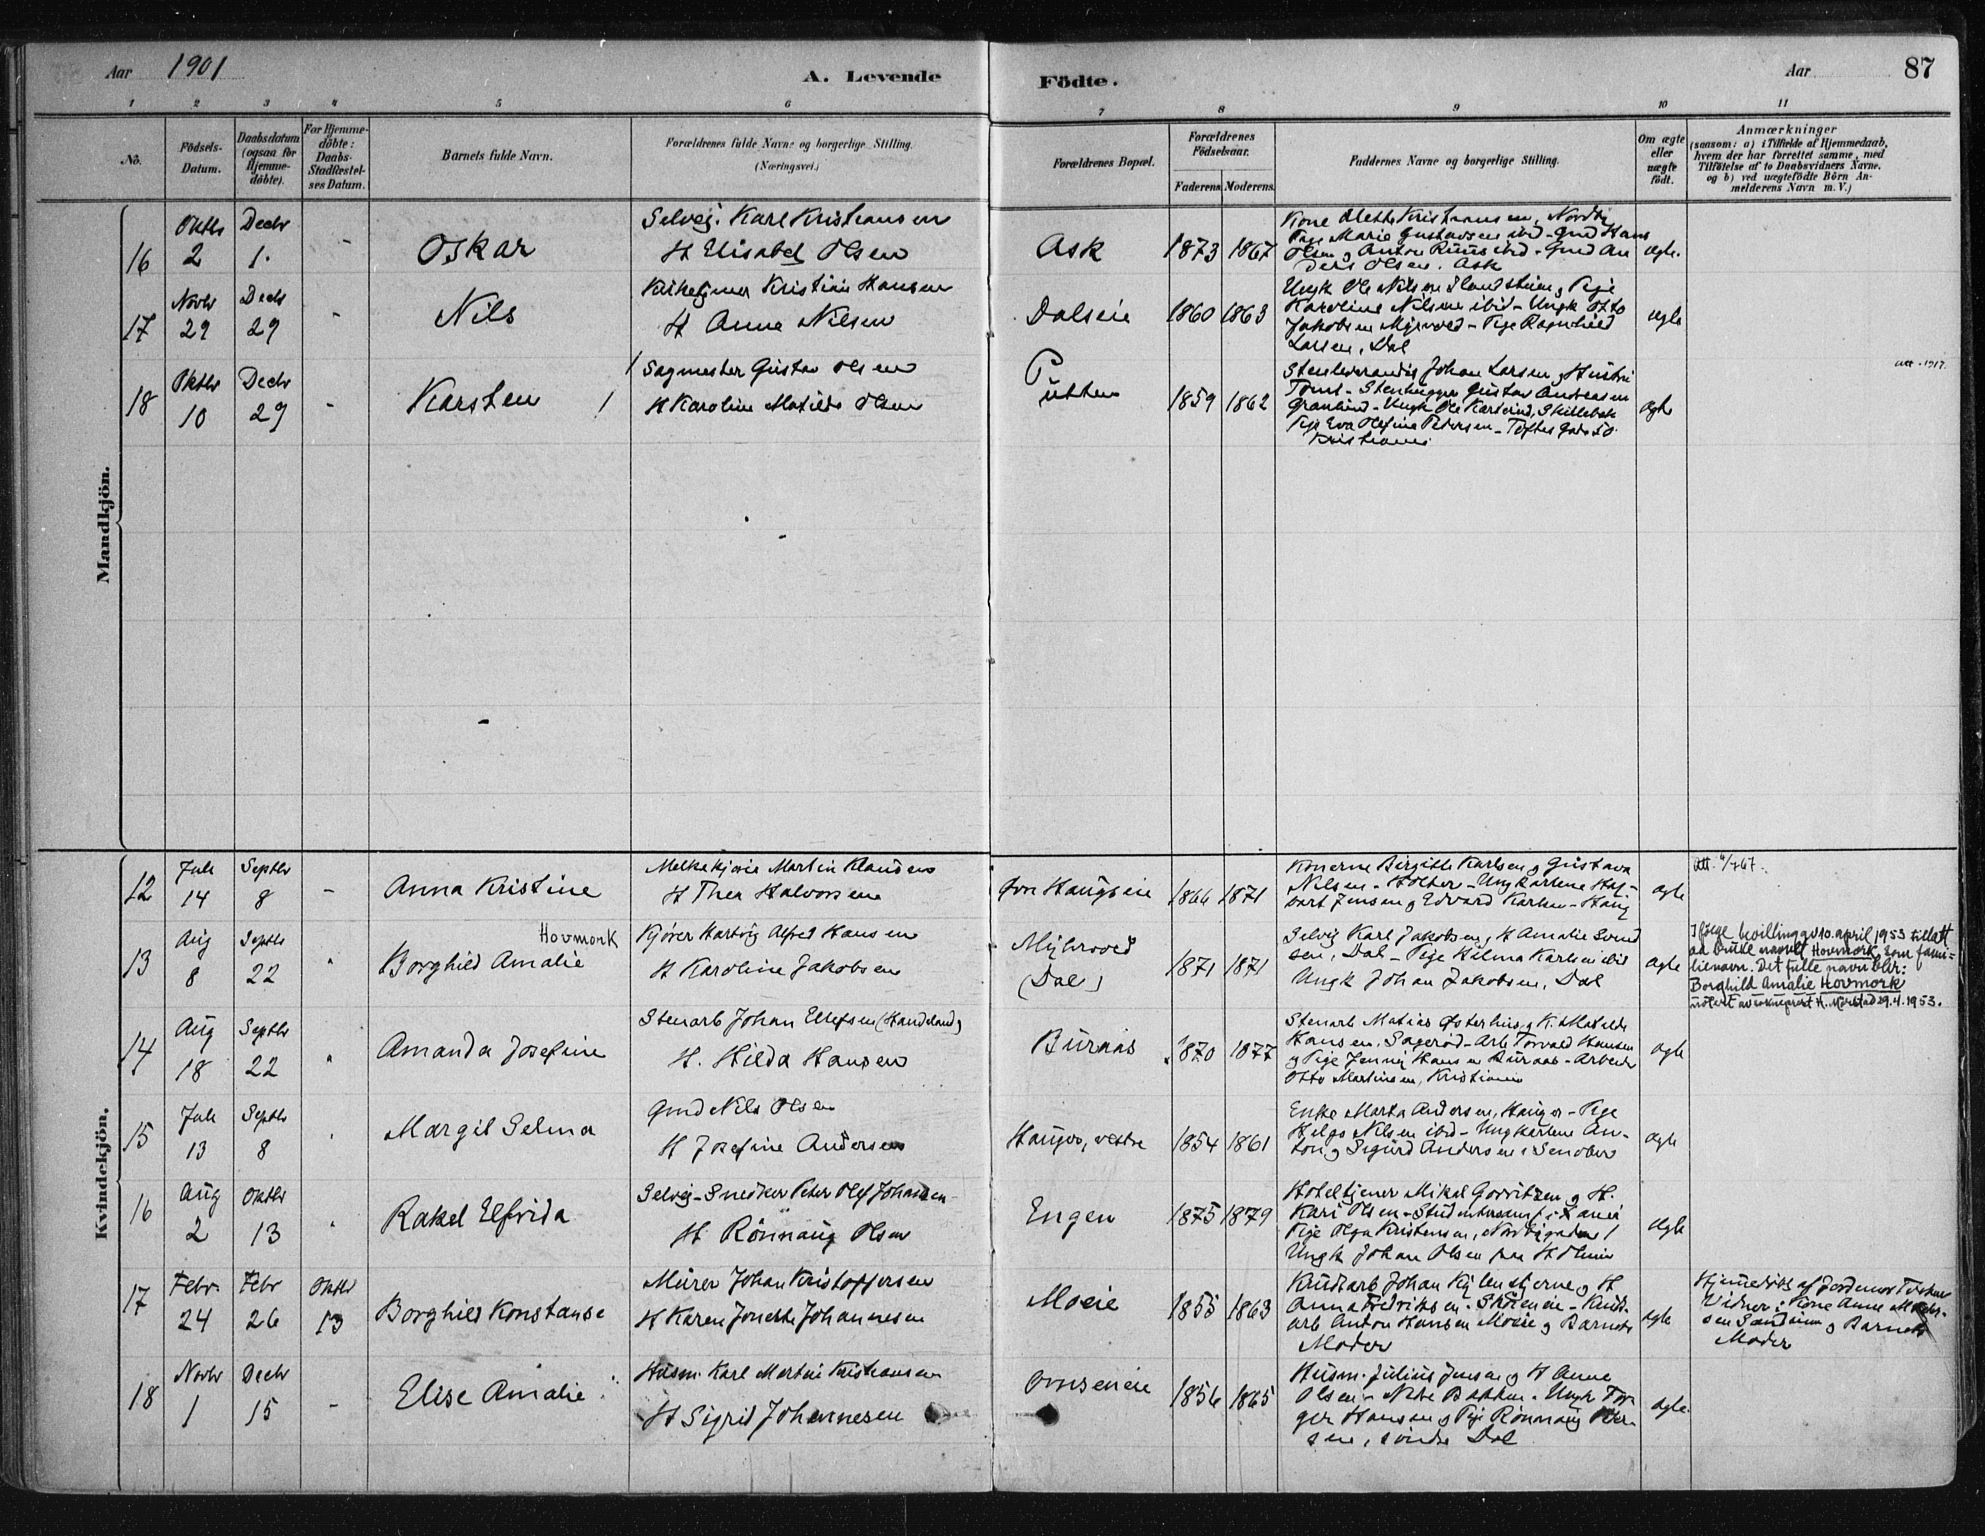 Aar 1901 A. Levende Födte. Aar 87
1 2 3 4 5 6 7 8 9 10 11
No. Födsels-Datum. Daabsdatum (ogsaa for Hjemmedöbte). For Hjemmedöbte: Daabs-Stadfæstelses Datum. Barnets fulde Navn. Forældrenes fulde Navne og borgerlige Stilling. (Næringsvei.) Forældrenes Bopæl. Forældrenes Födselsaar. Faderens Moderens Faddernes Navne og borgerlige Stilling. Om ægte eller uægte födt. Anmærkninger (saasom: a) i Tilfælde af Hjemmedaab, hvem der har forrettet samme, med Tilföielse af to Daabsvidners Navne. og b) ved uægtefödte Börn Anmelderens Navn m. V.)
Mandkjön.
16 Oktbr 2 Decbr 1. - Oskar
Selvej. Karl Kristiansen
H Elisabet Olsen
Ask 1873 1867
Kone Mette Kristiansen, Nordby
Pige Marie Gustavsen ibid - Gmd Hans
Olsen, Anton Ruus ibid - Gmd An
ders Olsen. Ask
ægte.
17 Novbr 29 Decbr 29 - Nils
Kristian Hansen
H Anne Nilsen
Dalseie 1860 1863
Ungk Ole Nilsen Pige
Karoline Nilsen ibid - Ungk Otto
Jakobsen Myrvold - Pige Ragnhild
Larsen, Dal
ægte
18 Oktbr 10 Decbr 29 - Karsten
Sagmester Gustav Olsen
H Karoline Matilde Olsen
Putten 1859 1862
Stenleverandör Johan Larsen, Hustru
Tomt - Stenhugger Gustav Andersen
Granlund - Ungk Ole Karlsrud, Skillebæk
Pige Eva Olefine Pedersen - Toftes Gade 50
Kristiania
ægte
att. 1917.
Kvindekjön.
12 Juli 14 Septbr 8 - Anna Kristine
Melkekjörer Martin Klausen
H Thea Halvorsen
Haugseie 1866 1871
Konerne Birgitte Karlsen og Gustava
Nilsen - Holter - Ungkarlene Hag-
bart Jensen og Edvard Karlsen - Haug
ægte
att. 4/7 67.
13 Aug 8 Septbr 22 " Borghild Amalie Hovmork
Kjörer Hartvig Alfred Hansen
H Karoline Jakobsen
Myhrvold
(Dal) 1871 1871
Selvej Karl Jakobsen, H Amalie Svend
sen, Dal - Pige Hilma Karlsen ibid
Ungk Johan Jakobsen, Dal
ægte
Ifölge bevilling av 10. april 1953 tillatt
aa bruke navnet Hovmork som fami-
lienavn. Det fulle navn blir:
Borghild Amalie Hovmork
notert av sokneprest H. Mörstad 29.4.1953.
14 Aug 18 Septbr 22 " Amanda Josefine
Stenarb Johan Ellefsen (Handeland)
H. Hilda Hansen
Buraas 1870 1877
Stenarb Matias Österhus, K. Matilde
Hansen, Sagerod - Arb Torvald Hansen
og Pige Jenny Hansen Buraas - Arbeider
Otto Martinsen, Kristiania
ægte
15 Juli 13 Septbr 8 " Margit Selma
Gmd Nils Olsen
H Josefine Andersen
Hauger, vestre 1854 1861
Enke Marta Andersen, Hauger - Pige
Helga Nilsen ibid - Ungkarlene An-
ton og Sigurd Andersen i Senober
ægte
16 Aug 2 Oktbr 13 " Rakel Elfrida
Selvej - Snedker Peter Olaf Johansen
H Rönnaug Olsen
Engen 1875 1879
Hoteltjener Mikal Gorritzen og H.
Kari Olsen
Pige Olga Kristensen, Nordbygaden 1
Ungk Johan Olsen fra Holmen
ægte
17 Febr. 24 Febr 26 Oktbr 13 Borghild Konstanse
Murer Johan Kristoffersen
H Karen Jonette Johannesen
Moeie 1855 1863
Krudtarb Johan Kylenstjerne og H
Anna Fredriksen - Skoieneie - Krudt-
arb Anton Hansen Moeie og Barnets
Moder
ægte
Hjemmedöbt af Jordemor
Vidner: Kone Anne
og Barnets
Moder
18 Novbr 1 Decbr 15 - Elise Amalie
Husm. Karl Martin Kristiansen
H Sigrid Johannesen
1856 1865
Husm. Julius Jensen og H Anne
Olsen - Nedre Bakken - Ungk Tor-
ger Hansen og Pige Rönnaug Peder-
sen, söndre Dal
ægte.